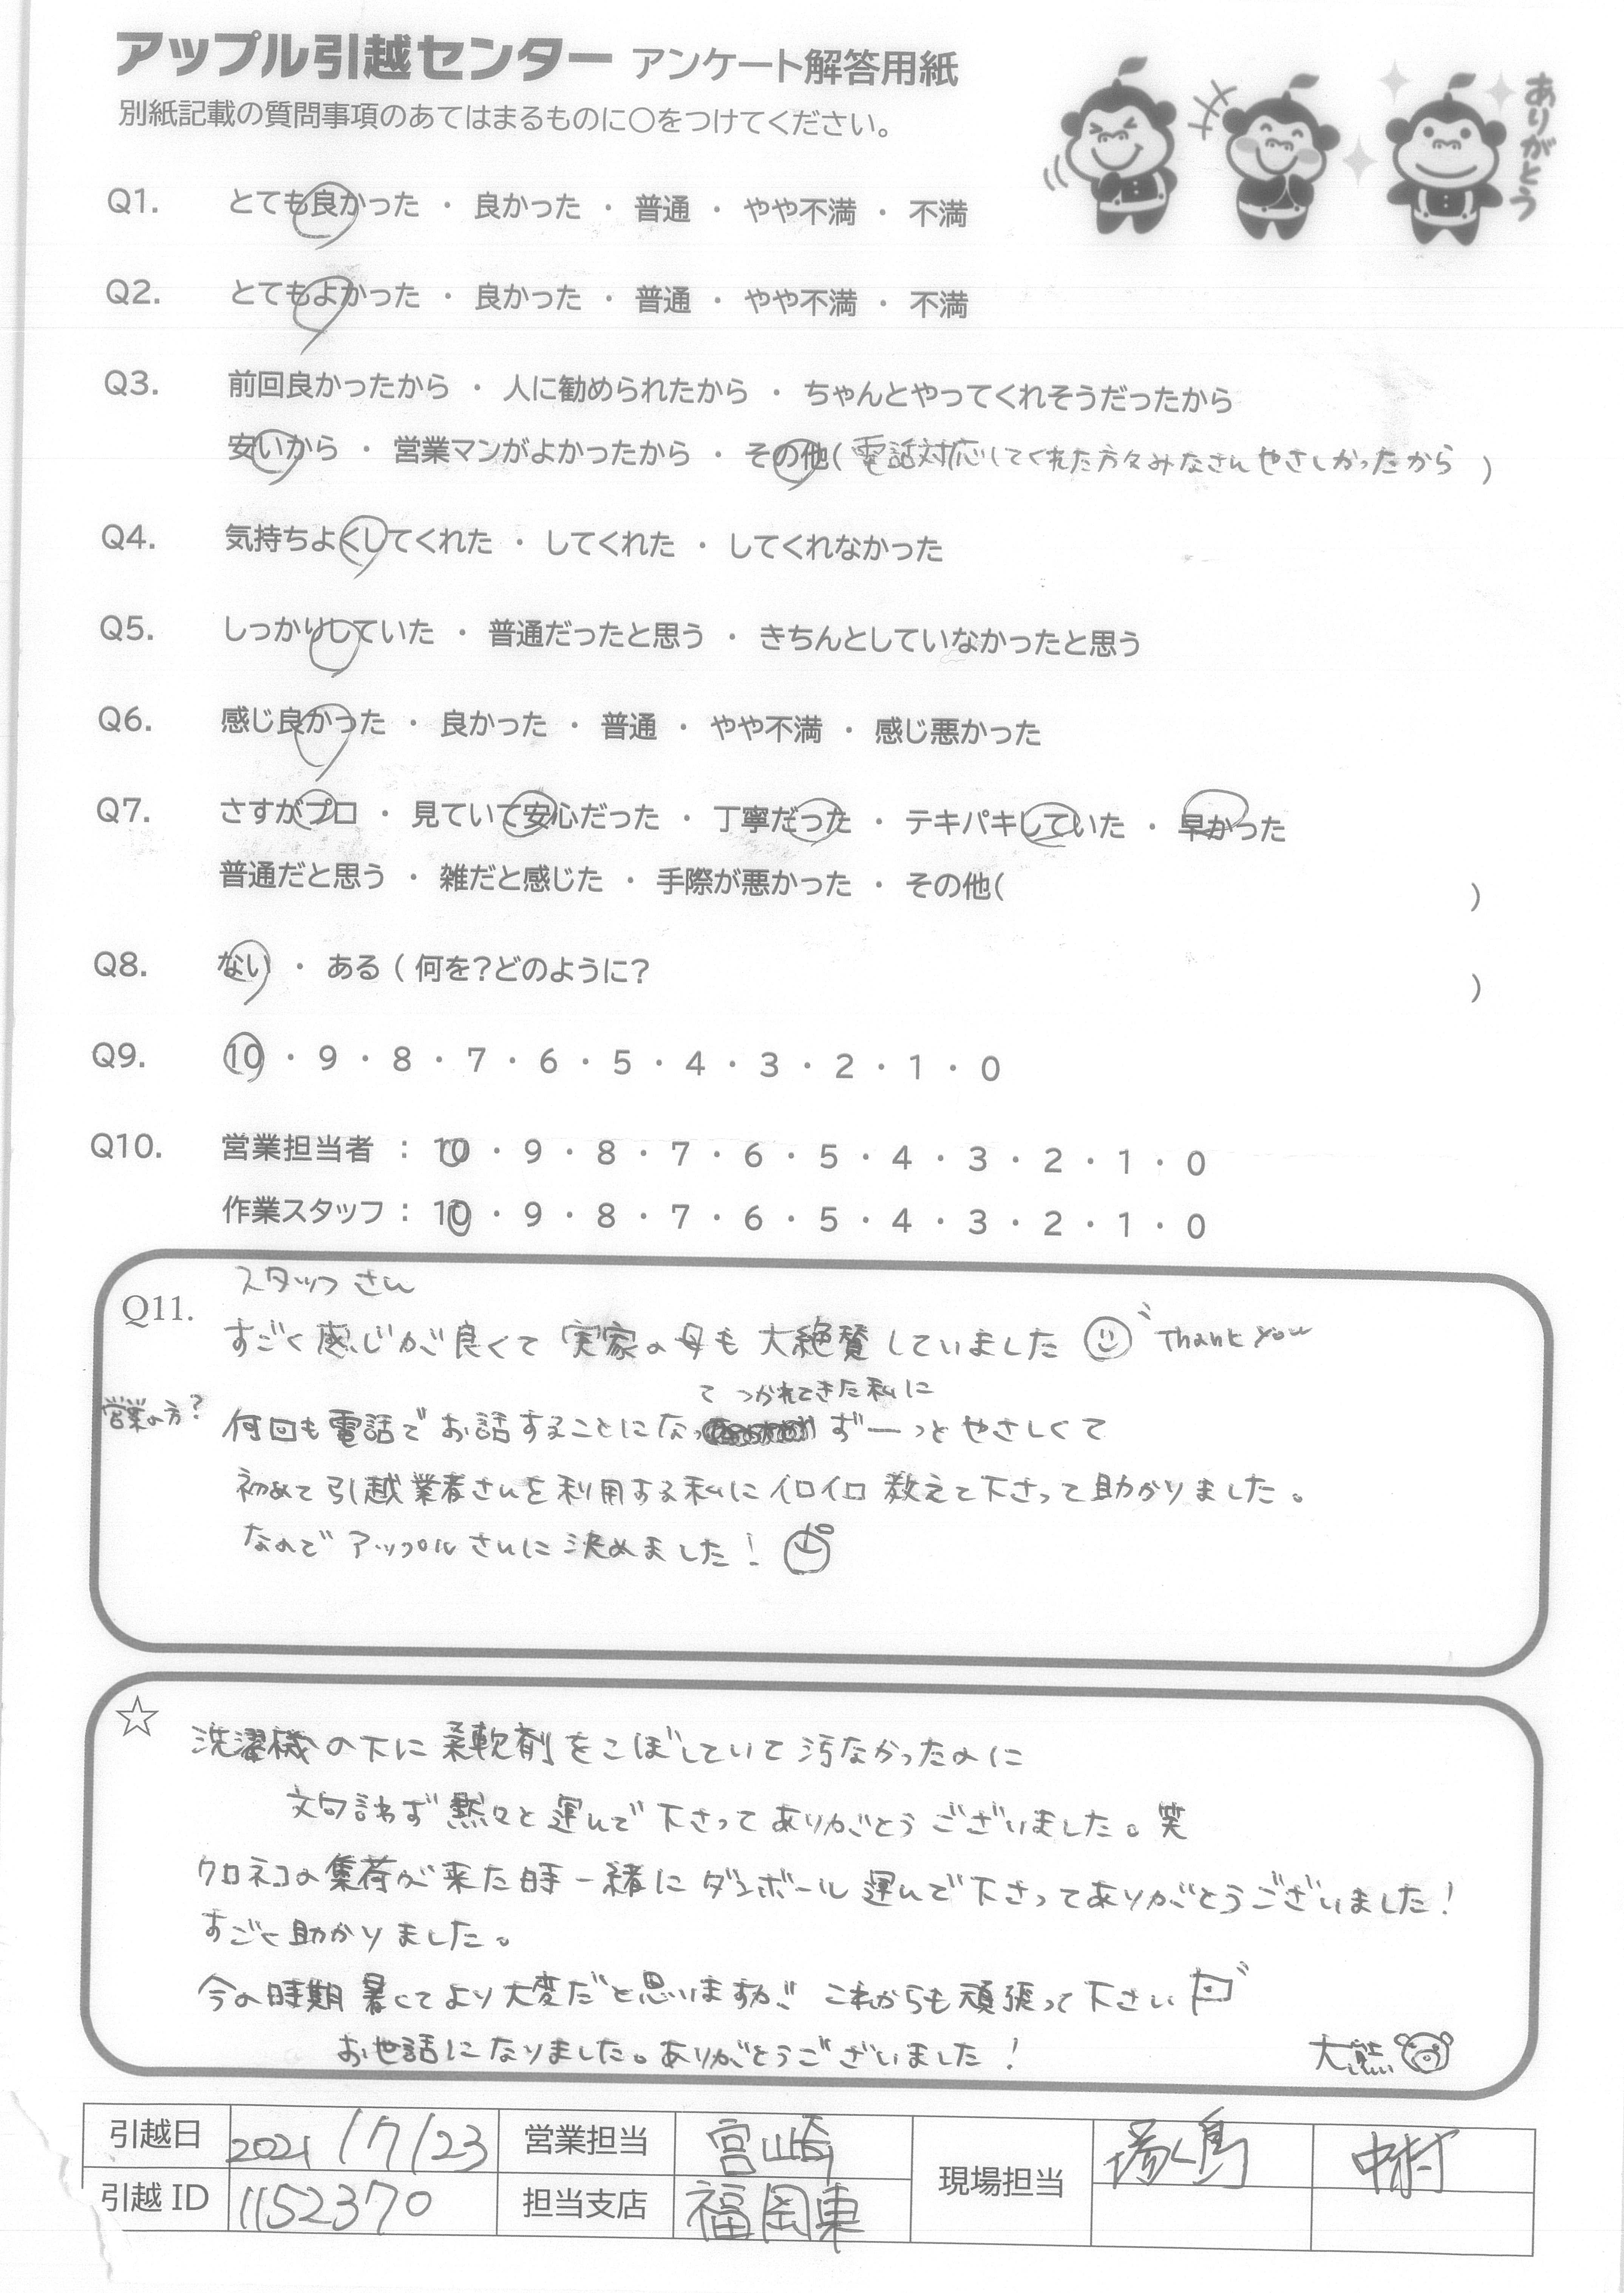 アップル引越センター アンケート解答用紙
別紙記載の質問事項のあてはまるものに〇をつけてください。
ありがとう
Q1. とても良かった ・ 良かった ・ 普通 ・ やや不満 ・ 不満
Q2. とてもよかった ・ 良かった ・ 普通 ・ やや不満 ・ 不満
Q3. 前回良かったから ・ 人に勧められたから ・ ちゃんとやってくれそうだったから
安いから ・ 営業マンがよかったから ・ その他( 電話対応してくれた方々みなさんやさしかったから )
Q4. 気持ちよくしてくれた ・ してくれた ・ してくれなかった
Q5. しっかりしていた ・ 普通だったと思う ・ きちんとしていなかったと思う
Q6. 感じ良かった ・ 良かった ・ 普通 ・ やや不満 ・ 感じ悪かった
Q7. さすがプロ ・ 見ていて安心だった ・ 丁寧だった ・ テキパキしていた ・ 早かった
普通だと思う ・ 雑だと感じた ・ 手際が悪かった ・ その他( )
Q8. ない ・ ある ( 何を?どのように? )
Q9. 10 ・ 9 ・ 8 ・ 7 ・ 6 ・ 5 ・ 4 ・ 3 ・ 2 ・ 1 ・ 0
Q10. 営業担当者 : 10 ・ 9 ・ 8 ・ 7 ・ 6 ・ 5 ・ 4 ・ 3 ・ 2 ・ 1 ・ 0
作業スタッフ : 10 ・ 9 ・ 8 ・ 7 ・ 6 ・ 5 ・ 4 ・ 3 ・ 2 ・ 1 ・ 0
スタッフさん
Q11. すごく感じが良くて 実家の母も 大絶賛していました Thank you
て つかれてきた私に
営業の方? 何回も電話でお話することになっ ずーっとやさしくて
初めて引越業者さんを利用する私にイロイロ教えて下さって助かりました。
なのでアップルさんに決めました!
☆ 洗濯機の下に柔軟剤をこぼしていて汚なかったのに
文句言わず黙々と運んで下さってありがとうございました。笑
クロネコの集荷が来た時一緒にダンボール運んで下さってありがとうございました!
すごく助かりました。
今の時期暑くてより大変だと思いますが!! これからも頑張って下さい
お世話になりました。ありがとうございました! 大熊
引越日 2021/7/23 営業担当 宮崎 現場担当 場々島 中村
引越ID 1152370 担当支店 福岡東